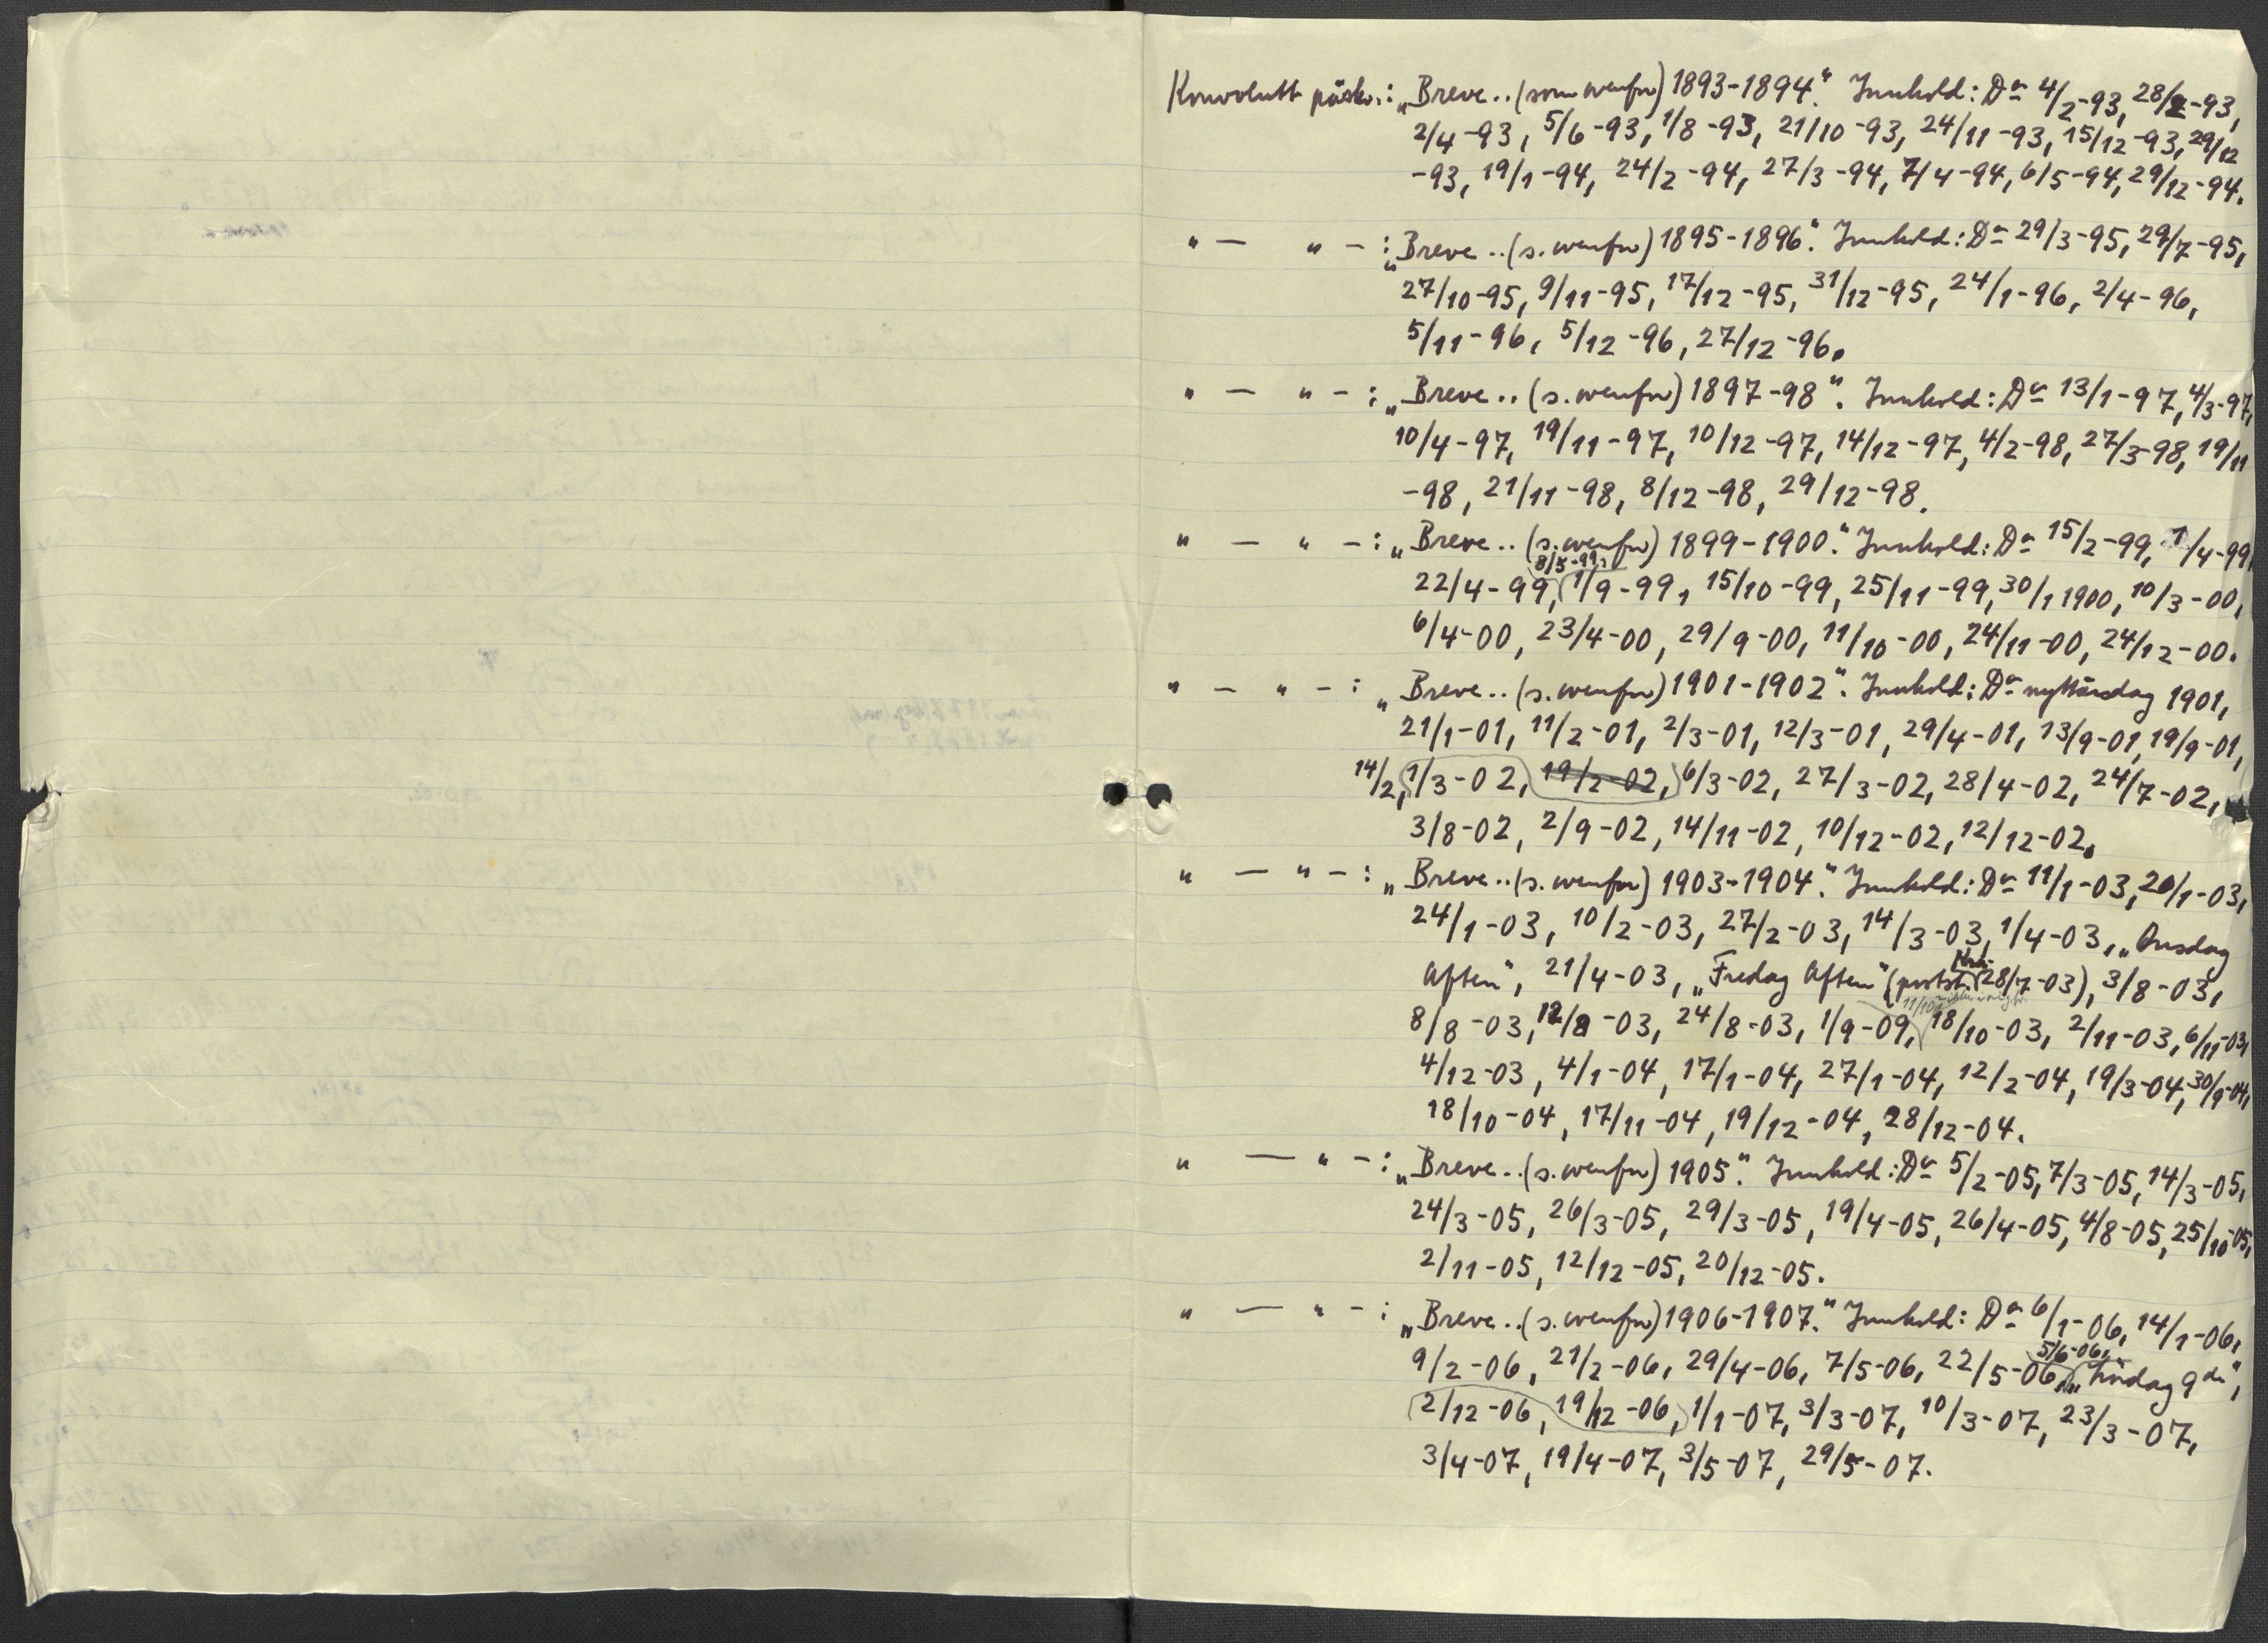 Konvolutt påskr.: „Breve.. (som ovenfor) 1893-1894“. Innhold: Da 4/2-93, 28/2-93,
2/4-93, 5/6-93, 1/8-93, 21/10-93, 24/11-93, 15/12-93, 29/12
-93, 19/1-94, 24/2-94, 27/3-94, 7/4-94, 6/5-94, 29/12-94.
" — " - : „Breve.. (s. ovenfor) 1895-1896“. Innhold: Da 29/3-95, 29/7-95,
27/10-95, 9/11-95, 17/12-95, 31/12-95, 24/1-96, 2/4-96,
5/11-96, 5/12-96, 27/12-96.
" — " - : „Breve.. (s. ovenfor) 1897-98“. Innhold: Da 13/1-97, 4/3-97,
10/4-97, 19/11-97, 10/12-97, 14/12-97, 4/2-98, 27/3-98, 19/11
-98, 21/11-98, 8/12-98, 29/12-98.
" — " - : „Breve.. (s. ovenfor) 1899-1900“. Innhold: Da 15/2-99, 1/4-99,
8/5-99,
22/4-99, 1/9-99, 15/10-99, 25/11-99, 30/1 1900, 10/3-00,
6/4-00, 23/4-00, 29/9-00, 11/10-00, 24/11-00, 24/12-00.
" — " - : „Breve.. (s. ovenfor) 1901-1902“. Innhold: Da nyttårsdag 1901,
21/1-01, 11/2-01, 2/3-01, 12/3-01, 29/4-01, 13/9-01, 19/9-01,
14/2, 1/3-02, 19/2-02, 6/3-02, 27/3-02, 28/4-02, 24/7-02,
3/8-02, 2/9-02, 14/11-02, 10/12-02, 12/12-02.
" — " - : „Breve.. (s. ovenfor) 1903-1904“. Innhold: Da 11/1-03, 20/1-03,
24/1-03, 10/2-03, 27/2-03, 14/3-03, 1/4-03, „Onsdag
Aften“, 21/4-03, „Fredag Aften“ (postst. Kra. 28/7-03), 3/8-03,
11/10
8/8-03, 12/8-03, 24/8-03, 1/9-09, 18/10-03, 2/11-03, 6/11-03,
4/12-03, 4/1-04, 17/1-04, 27/1-04, 12/2-04, 19/3-04, 30/9-04,
18/10-04, 17/11-04, 19/12-04, 28/12-04.
" — " - : „Breve.. (s. ovenfor) 1905“. Innhold: Da 5/2-05, 7/3-05, 14/3-05,
24/3-05, 26/3-05, 29/3-05, 19/4-05, 26/4-05, 4/8-05, 25/10-05,
2/11-05, 12/12-05, 20/12-05.
" — " - : „Breve.. (s. ovenfor) 1906-1907“. Innhold: Da 6/1-06, 14/1-06,
5/6-06,
9/2-06, 21/2-06, 29/4-06, 7/5-06, 22/5-06, „Lördag 9de“,
2/12-06, 19/12-06, 1/1-07, 3/3-07, 10/3-07, 23/3-07,
3/4-07, 19/4-07, 3/5-07, 29/5-07.